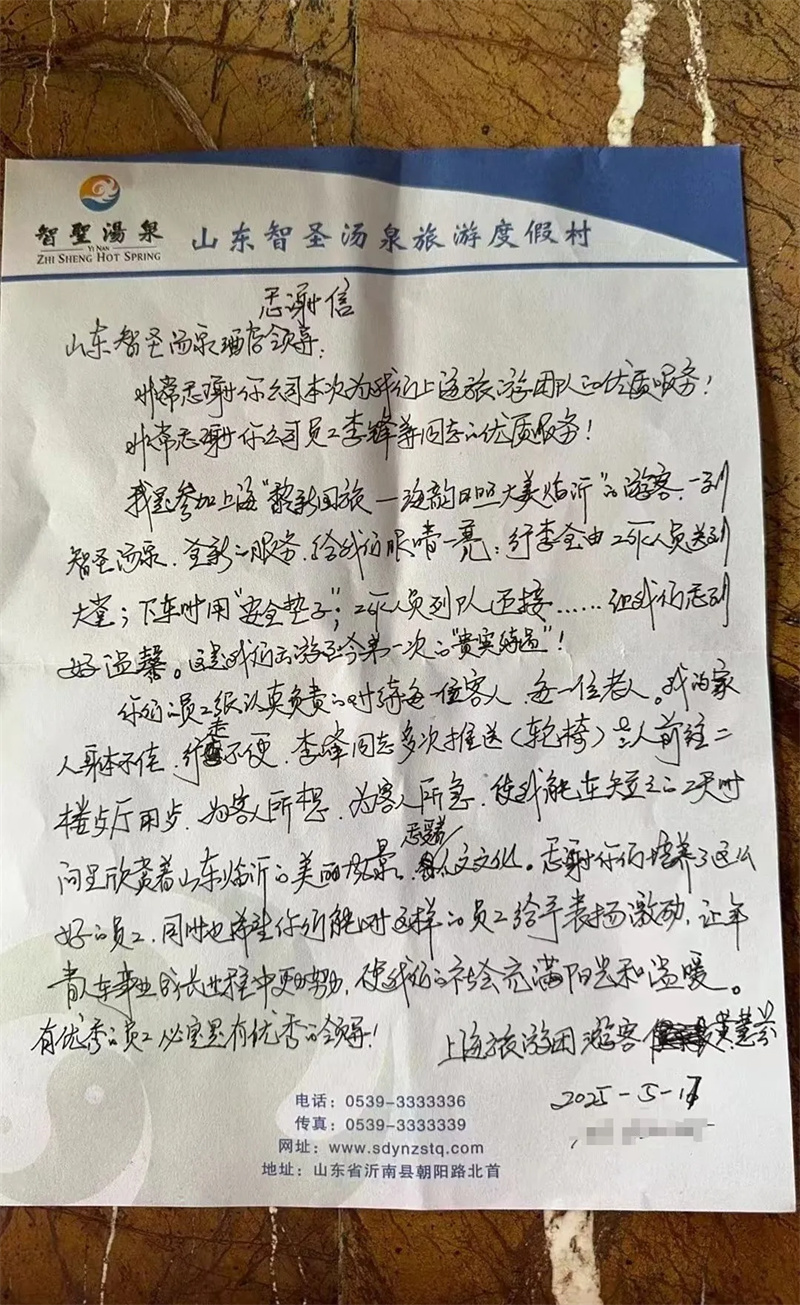 智聖湯泉
YI NAN
ZHI SHENG HOT SPRING
山东智圣汤泉旅游度假村
感谢信
山东智圣汤泉酒店领导：
非常感谢你公司本次为我们上海旅游团队的优质服务！
非常感谢你公司员工李锋等同志的优质服务！
我是参加上海“黎新国旅—海韵日照大美临沂”的游客，一到
智圣汤泉，全新的服务，给我们眼睛一亮：行李全由工作人员送到
大堂；下车时用“安全垫子”；工作人员列队迎接……让我们感到
好温馨。这是我们出游至今第一次的“贵宾待遇”！
你们的员工很认真负责的对待每一位客人，每一位老人。我的家
人身体不佳，行走不便，李峰同志多次推送（轮椅）老人前往二
楼餐厅用餐，为客人所想，为客人所急，使我能在短短的2天时
间里欣赏着山东临沂的美丽风景。感受着人文文化。感谢你们培养了这么
好的员工，同时也希望你们能对这样的员工给予表扬激励，让年
青人在事业成长过程中更加努力，使我们的社会充满阳光和温暖。
有优秀的员工必定是有优秀的领导！
上海旅游团 游客 黄慧芬
2025-5-17
电话：0539-3333336
传真：0539-3333339
网址：www.sdynzstq.com
地址：山东省沂南县朝阳路北首